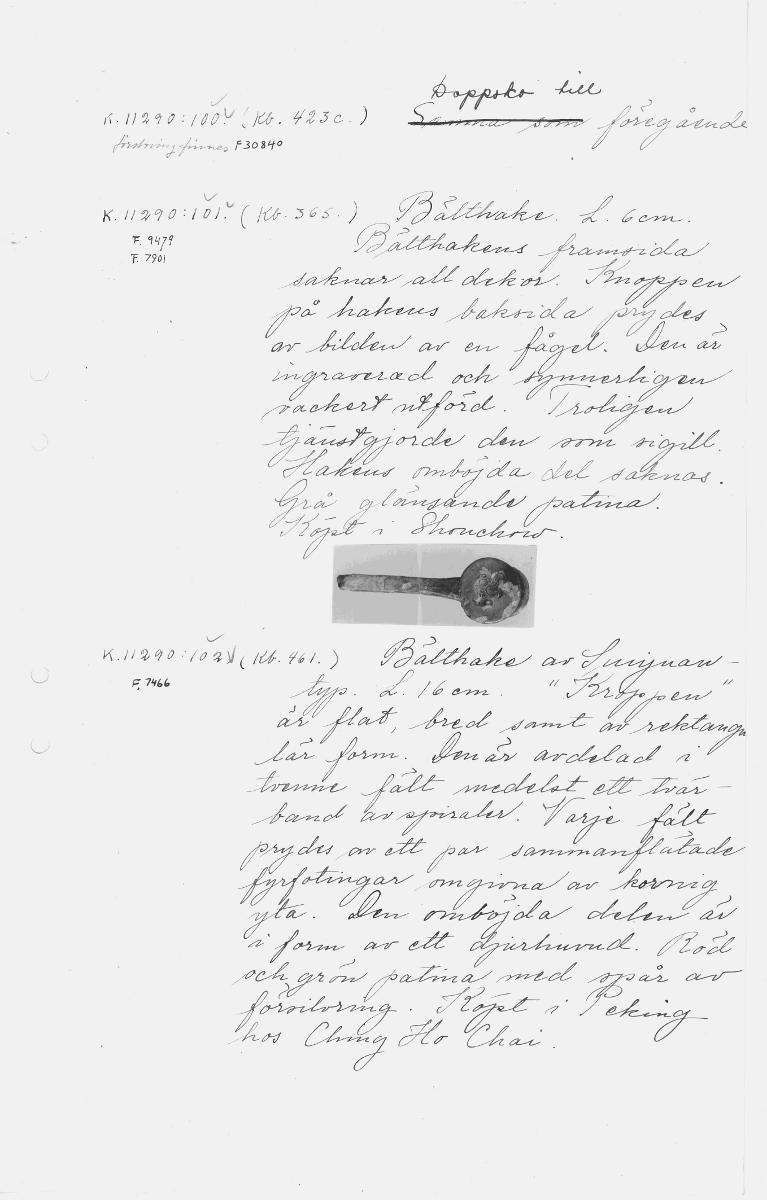 Doppsko till
K.11290:100. (Kb. 423c.) Samma som föregående
förstoring finnes F30840
K.11290:101. (Kb. 365.) Bälthake. L. 6 cm.
F. 9479
F. 7901
Bälthakens framsida
saknar all dekor. Knoppen
på hakens baksida prydes
av bilden av en fågel. Den är
ingraverad och synnerligen
vackert utförd. Troligen
tjänstgjorde den som sigill.
Hakens omböjda del saknas.
Grå glänsande patina.
Köpt i Shouchow.
K.11290:102 (Kb. 461.) Bälthake av Suiyuan-
F. 7466
typ. L. 16 cm. "Kroppen"
är flat, bred samt av rektangu
lär form. Den är avdelad i
tvenne fält medelst ett tvär-
band av spiraler. Varje fält
prydes av ett par sammanflätade
fyrfotingar omgivna av kornig
yta. Den omböjda delen är
i form av ett djurhuvud. Röd
och grön patina med spår av
försilvring. Köpt i Peking
hos Ching Ho Chai.